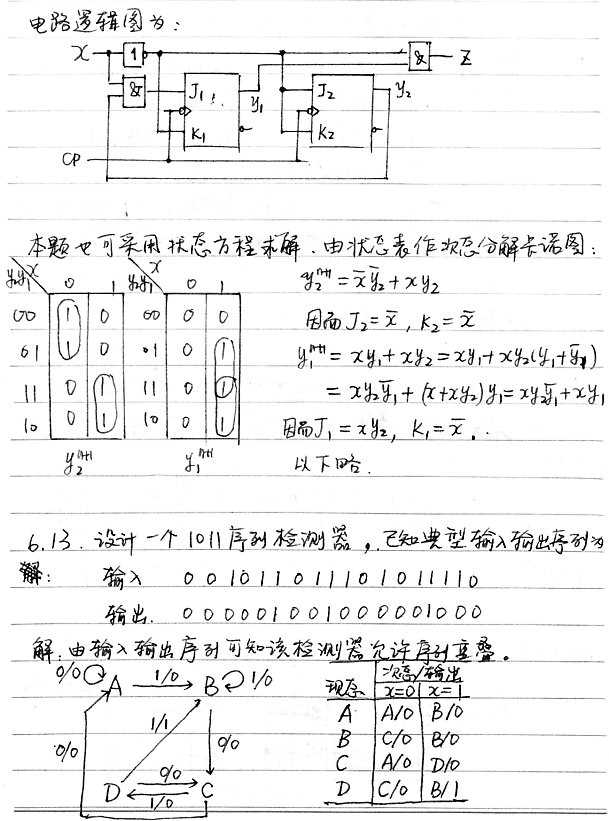 电路逻辑图为:
X 1 & J₁ K₁ y₁ J₂ K₂ y₂ & Z
CP
本题也可采用状态方程求解.由状态表作次态分解卡诺图:
y₂y₁ x 0 1 y₂y₁ x 0 1
00 1 0 00 0 0
01 1 0 01 0 1
11 0 1 11 0 1
10 0 1 10 0 1
y₂ⁿ⁺¹ y₁ⁿ⁺¹
y₂ⁿ⁺¹ = x̄ȳ₂ + xy₂
因而 J₂ = x̄, K₂ = x̄
y₁ⁿ⁺¹ = xy₁ + xy₂ = xy₁ + xy₂(y₁+ȳ₁)
= xy₂ȳ₁ + (x+xy₂)y₁ = xy₂ȳ₁ + xy₁
因而 J₁ = xy₂, K₁ = x̄.
以下略.
6.13.设计一个1011序列检测器,已知典型输入输出序列为
解: 输入 0 0 1 0 1 1 0 1 1 1 0 1 0 1 1 1 1 0
输出. 0 0 0 0 0 1 0 0 1 0 0 0 0 0 1 0 0 0
解.由输入输出序列可知该检测器允许序列重叠。
0/0 A 1/0 B 1/0
1/1
0/0 0/0
D 0/0 C
1/0
现态 次态/输出
x=0 x=1
A A/0 B/0
B C/0 B/0
C A/0 D/0
D C/0 B/1